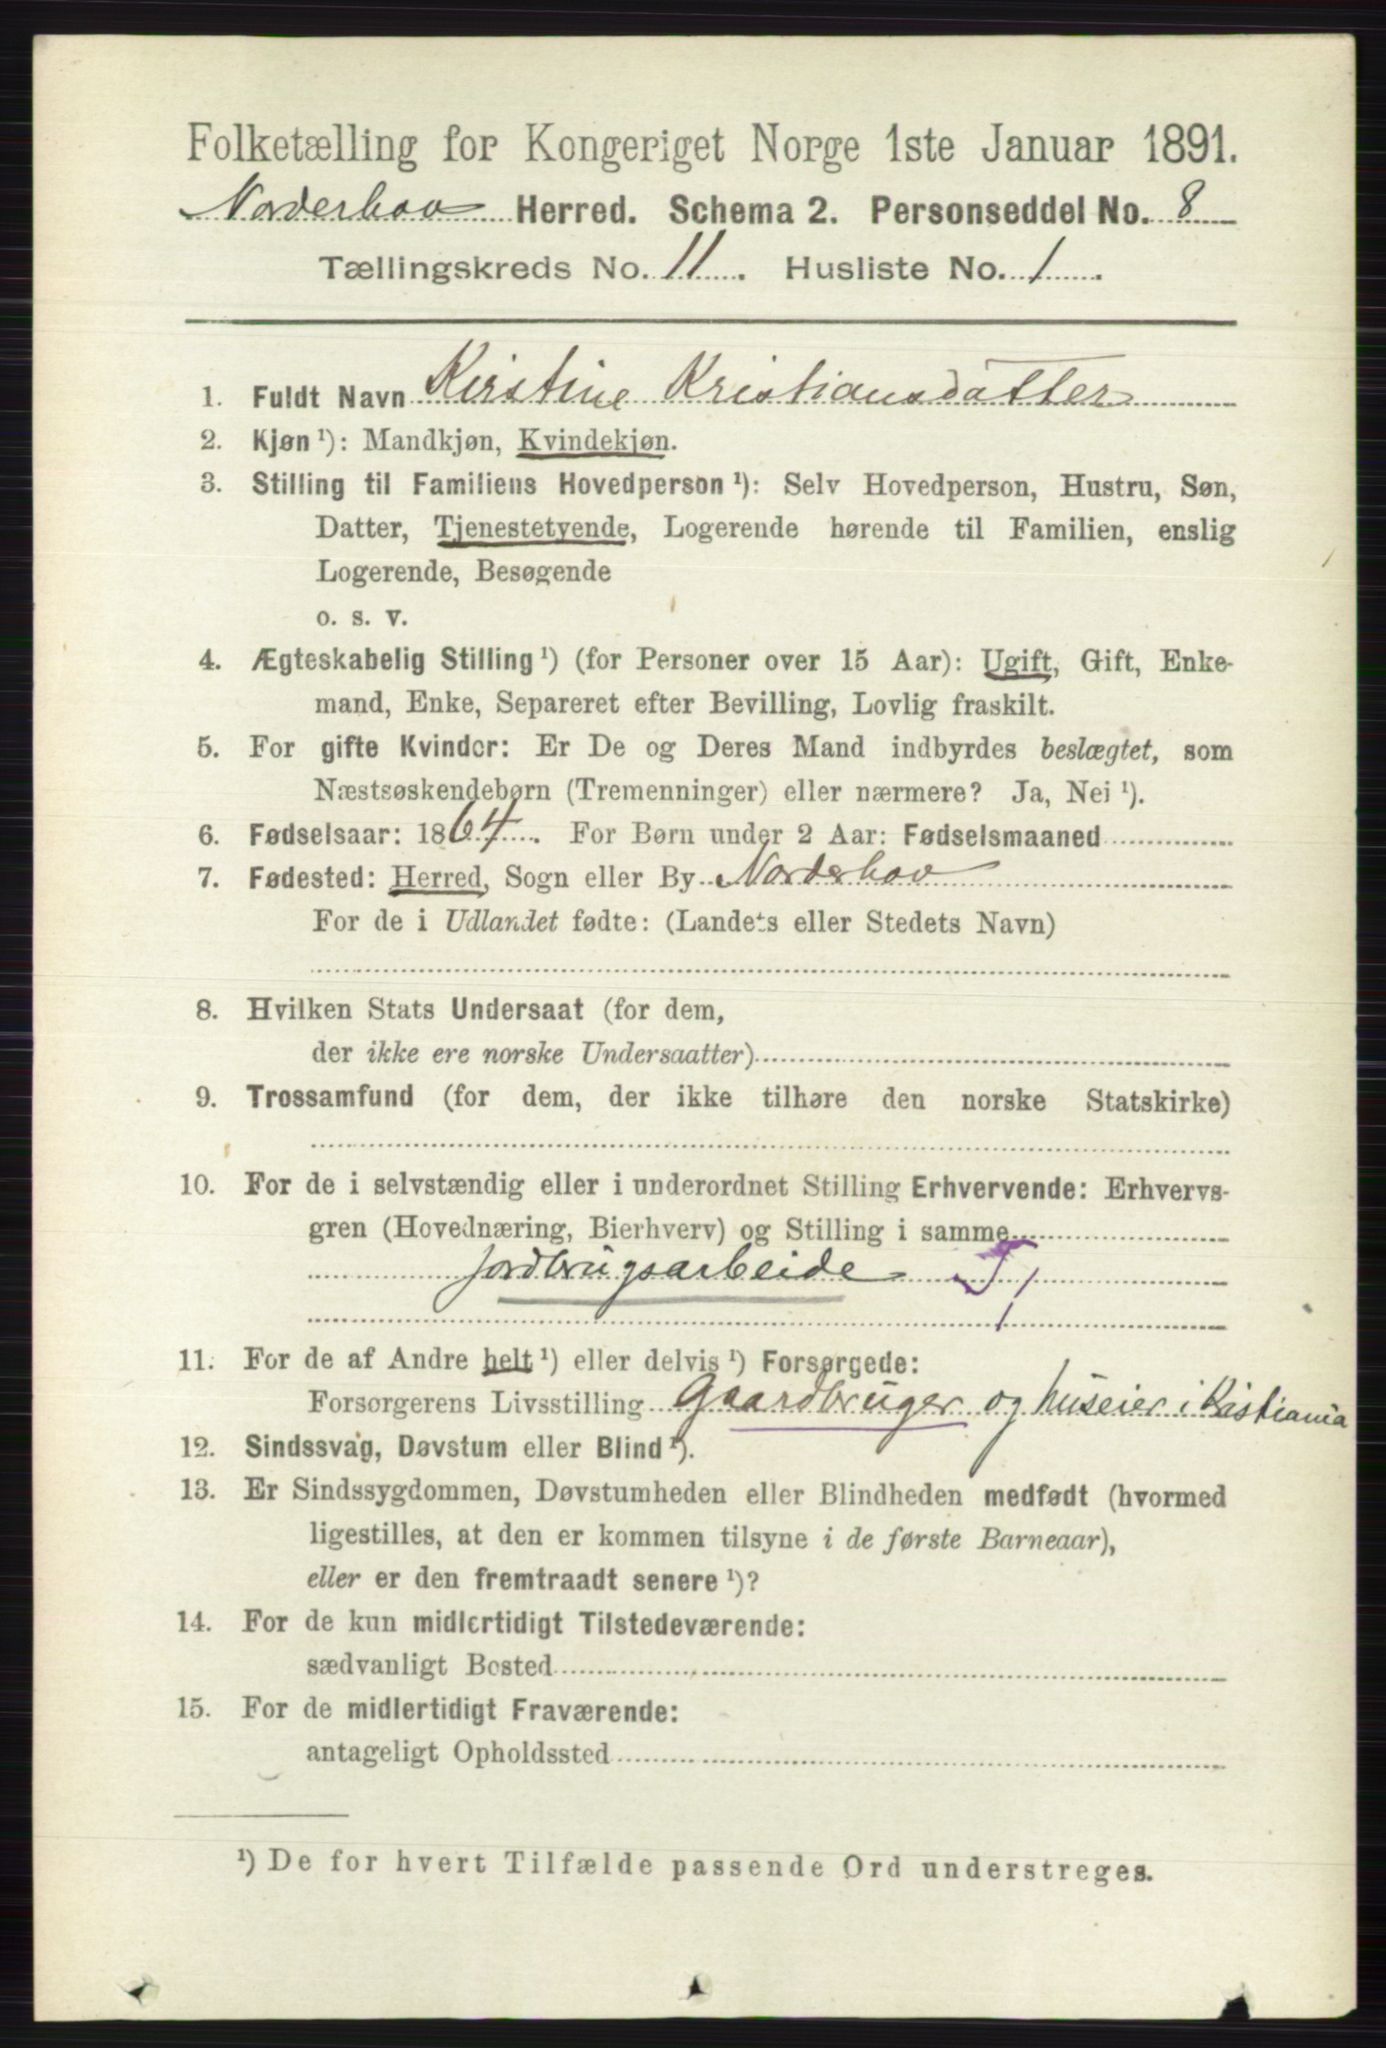 Folketælling for Kongeriget Norge 1ste Januar 1891.
Norderhov Herred. Schema 2. Personseddel No. 8
Tællingskreds No. 11. Husliste No. 1.
1. Fuldt Navn Kirstine Kristiansdatter
2. Kjøn ¹): Mandkjøn, Kvindekjøn.
3. Stilling til Familiens Hovedperson ¹): Selv Hovedperson, Hustru, Søn,
Datter, Tjenestetyende, Logerende hørende til Familien, enslig
Logerende, Besøgende
o. s. v.
4. Ægteskabelig Stilling ¹) (for Personer over 15 Aar): Ugift, Gift, Enke-
mand, Enke, Separeret efter Bevilling, Lovlig fraskilt.
5. For gifte Kvinder: Er De og Deres Mand indbyrdes beslægtet, som
Næstsøskendebørn (Tremenninger) eller nærmere? Ja, Nei ¹).
6. Fødselsaar: 1864. For Børn under 2 Aar: Fødselsmaaned
7. Fødested: Herred, Sogn eller By Norderhov
For de i Udlandet fødte: (Landets eller Stedets Navn)
8. Hvilken Stats Undersaat (for dem,
der ikke ere norske Undersaatter)
9. Trossamfund (for dem, der ikke tilhøre den norske Statskirke)
10. For de i selvstændig eller i underordnet Stilling Erhvervende: Erhvervs-
gren (Hovednæring, Bierhverv) og Stilling i samme
jordbrugsarbeide
11. For de af Andre helt ¹) eller delvis ¹) Forsørgede:
Forsørgerens Livsstilling Gaardbruger og huseier i Kistiania
12. Sindssvag, Døvstum eller Blind ¹).
13. Er Sindssygdommen, Døvstumheden eller Blindheden medfødt (hvormed
ligestilles, at den er kommen tilsyne i de første Barneaar),
eller er den fremtraadt senere ¹)?
14. For de kun midlertidigt Tilstedeværende:
sædvanligt Bosted
15. For de midlertidigt Fraværende:
antageligt Opholdssted
¹) De for hvert Tilfælde passende Ord understreges.